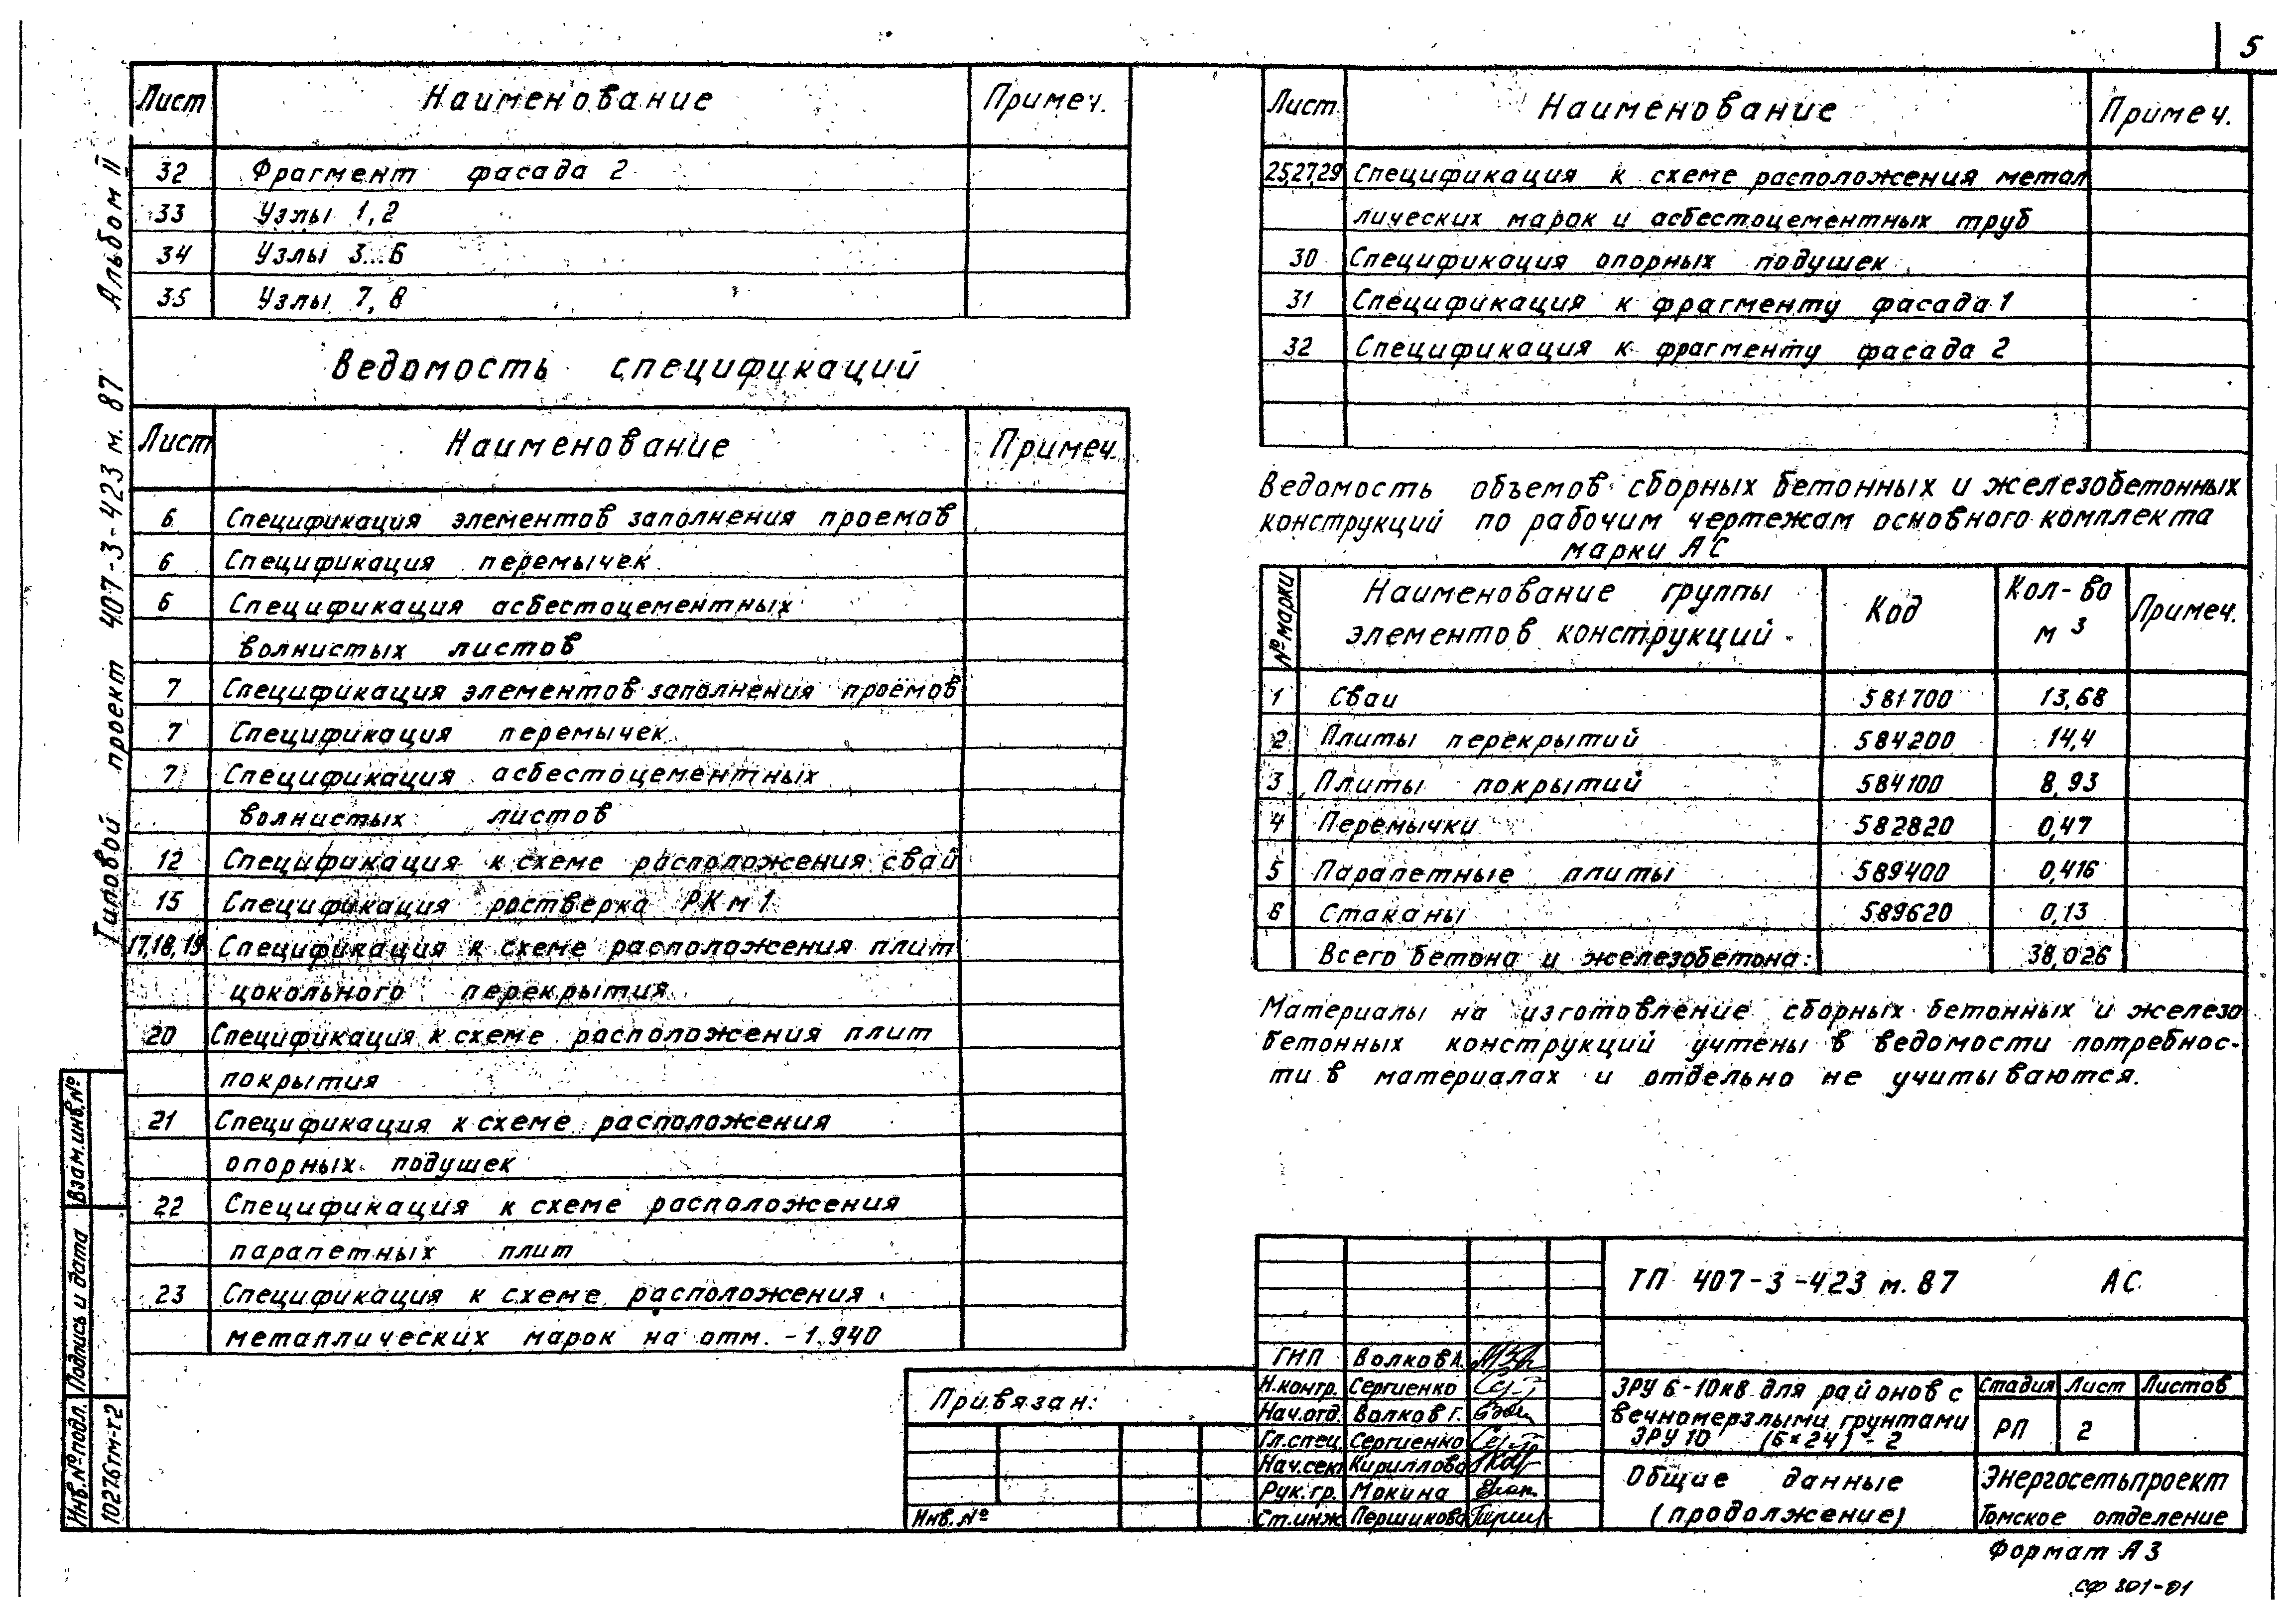 5
Лист Наименование Примеч.
32 Фрагмент фасада 2
33 Узлы 1, 2
34 Узлы 3...6
35 Узлы 7, 8
Ведомость спецификаций
Лист Наименование Примеч.
6 Спецификация элементов заполнения проемов
6 Спецификация перемычек
6 Спецификация асбестоцементных
волнистых листов
7 Спецификация элементов заполнения проёмов
7 Спецификация перемычек
7 Спецификация асбестоцементных
волнистых листов
12 Спецификация к схеме расположения свай
15 Спецификация ростверка РКм1
17,18,19 Спецификация к схеме расположения плит
цокольного перекрытия
20 Спецификация к схеме расположения плит
покрытия
21 Спецификация к схеме расположения
опорных подушек
22 Спецификация к схеме расположения
парапетных плит
23 Спецификация к схеме расположения
металлических марок на отм. -1.940
Лист Наименование Примеч.
25,27,29 Спецификация к схеме расположения метал
лических марок и асбестоцементных труб
30 Спецификация опорных подушек
31 Спецификация к фрагменту фасада 1
32 Спецификация к фрагменту фасада 2
Ведомость объемов сборных бетонных и железобетонных
конструкций по рабочим чертежам основного комплекта
марки АС
№ марки Наименование группы элементов конструкций Код Кол-во м3 Примеч.
1 Сваи 581700 13,68
2 Плиты перекрытий 584200 14,4
3 Плиты покрытий 584100 8,93
4 Перемычки 582820 0,47
5 Парапетные плиты 589400 0,416
6 Стаканы 589620 0,13
Всего бетона и железобетона: 38,026
Материалы на изготовление сборных бетонных и железо
бетонных конструкций учтены в ведомости потребнос-
ти в материалах и отдельно не учитываются.
Типовой проект 407-3-423 м. 87 Альбом II
Взам.инв.№
Подпись и дата
Инв.№подл. 10276тм-т2
Привязан:
Инв.№
ТП 407-3-423 м.87 АС
ГИП Волков А.
Н.контр. Сергиенко
Нач.отд. Волков Г.
Гл.спец. Сергиенко
Нач.сект Кириллова
Рук.гр. Мокина
Ст.инж Першикова
ЗРУ 6-10кв для районов с
вечномерзлыми грунтами
ЗРУ 10 (6×24) - 2
Стадия Лист Листов
РП 2
Общие данные
(продолжение)
Энергосетьпроект
Томское отделение
Формат А3
сф 801-01